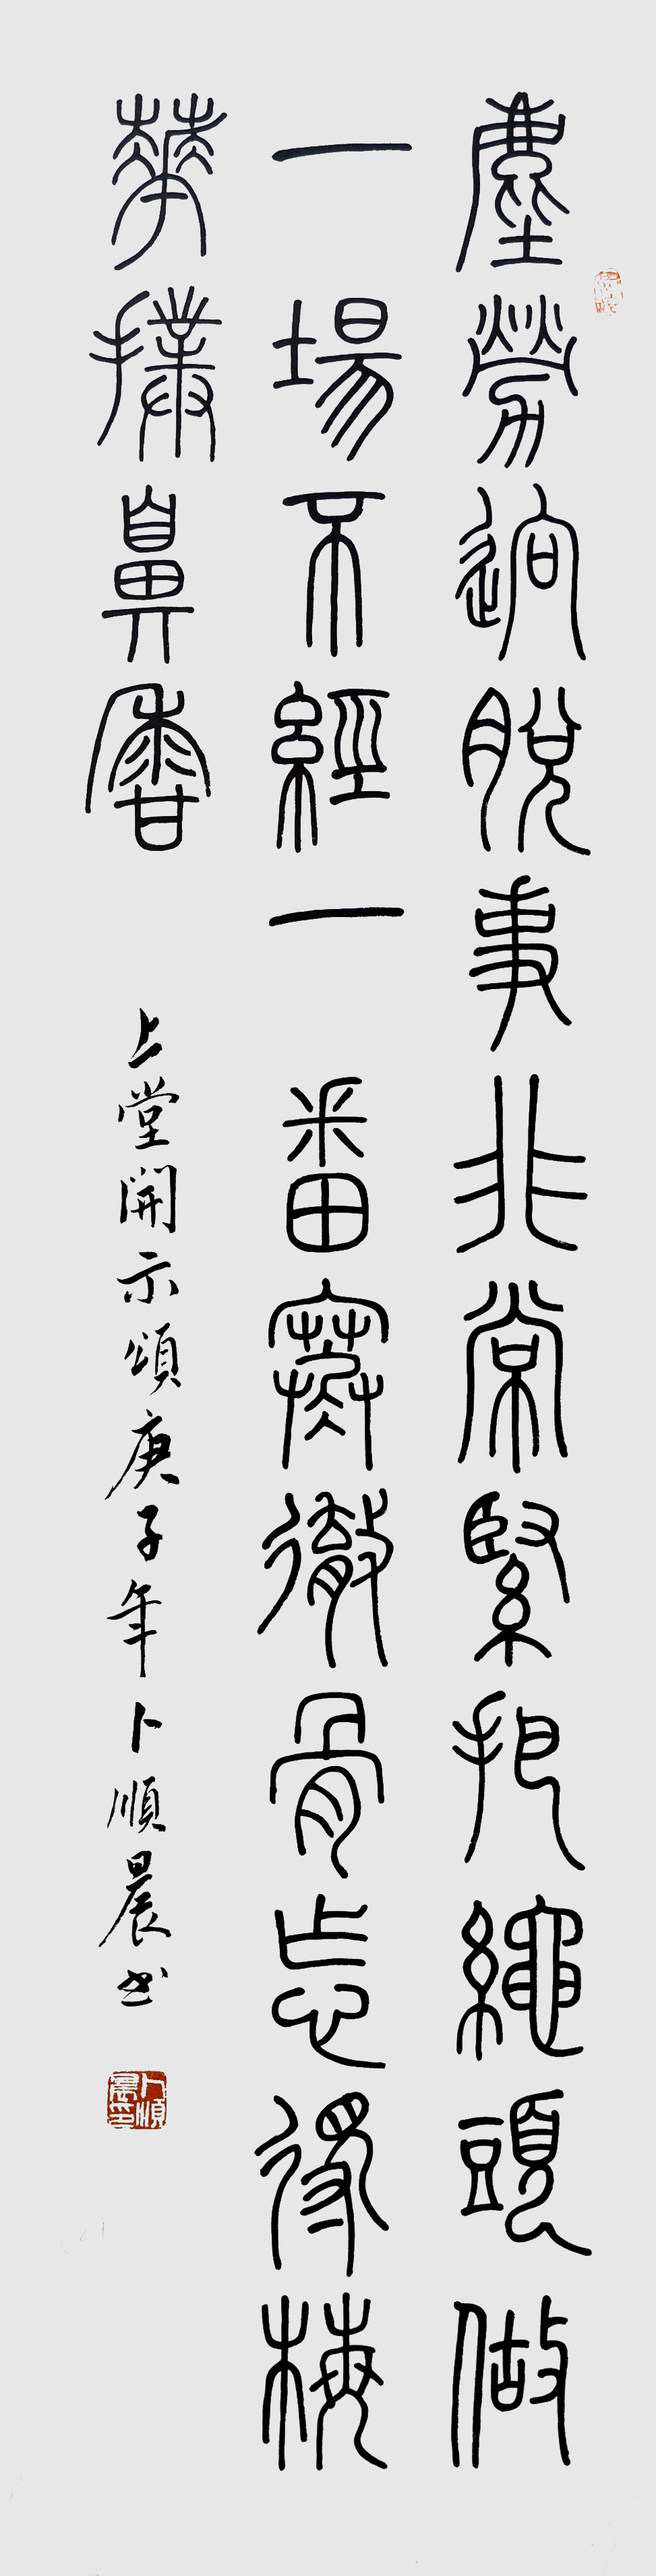 塵勞迥脫事非常緊把繩頭做
一場不經一番寒徹骨怎得梅
華撲鼻香
上堂開示頌庚子年卜順晨书
卜順晨印